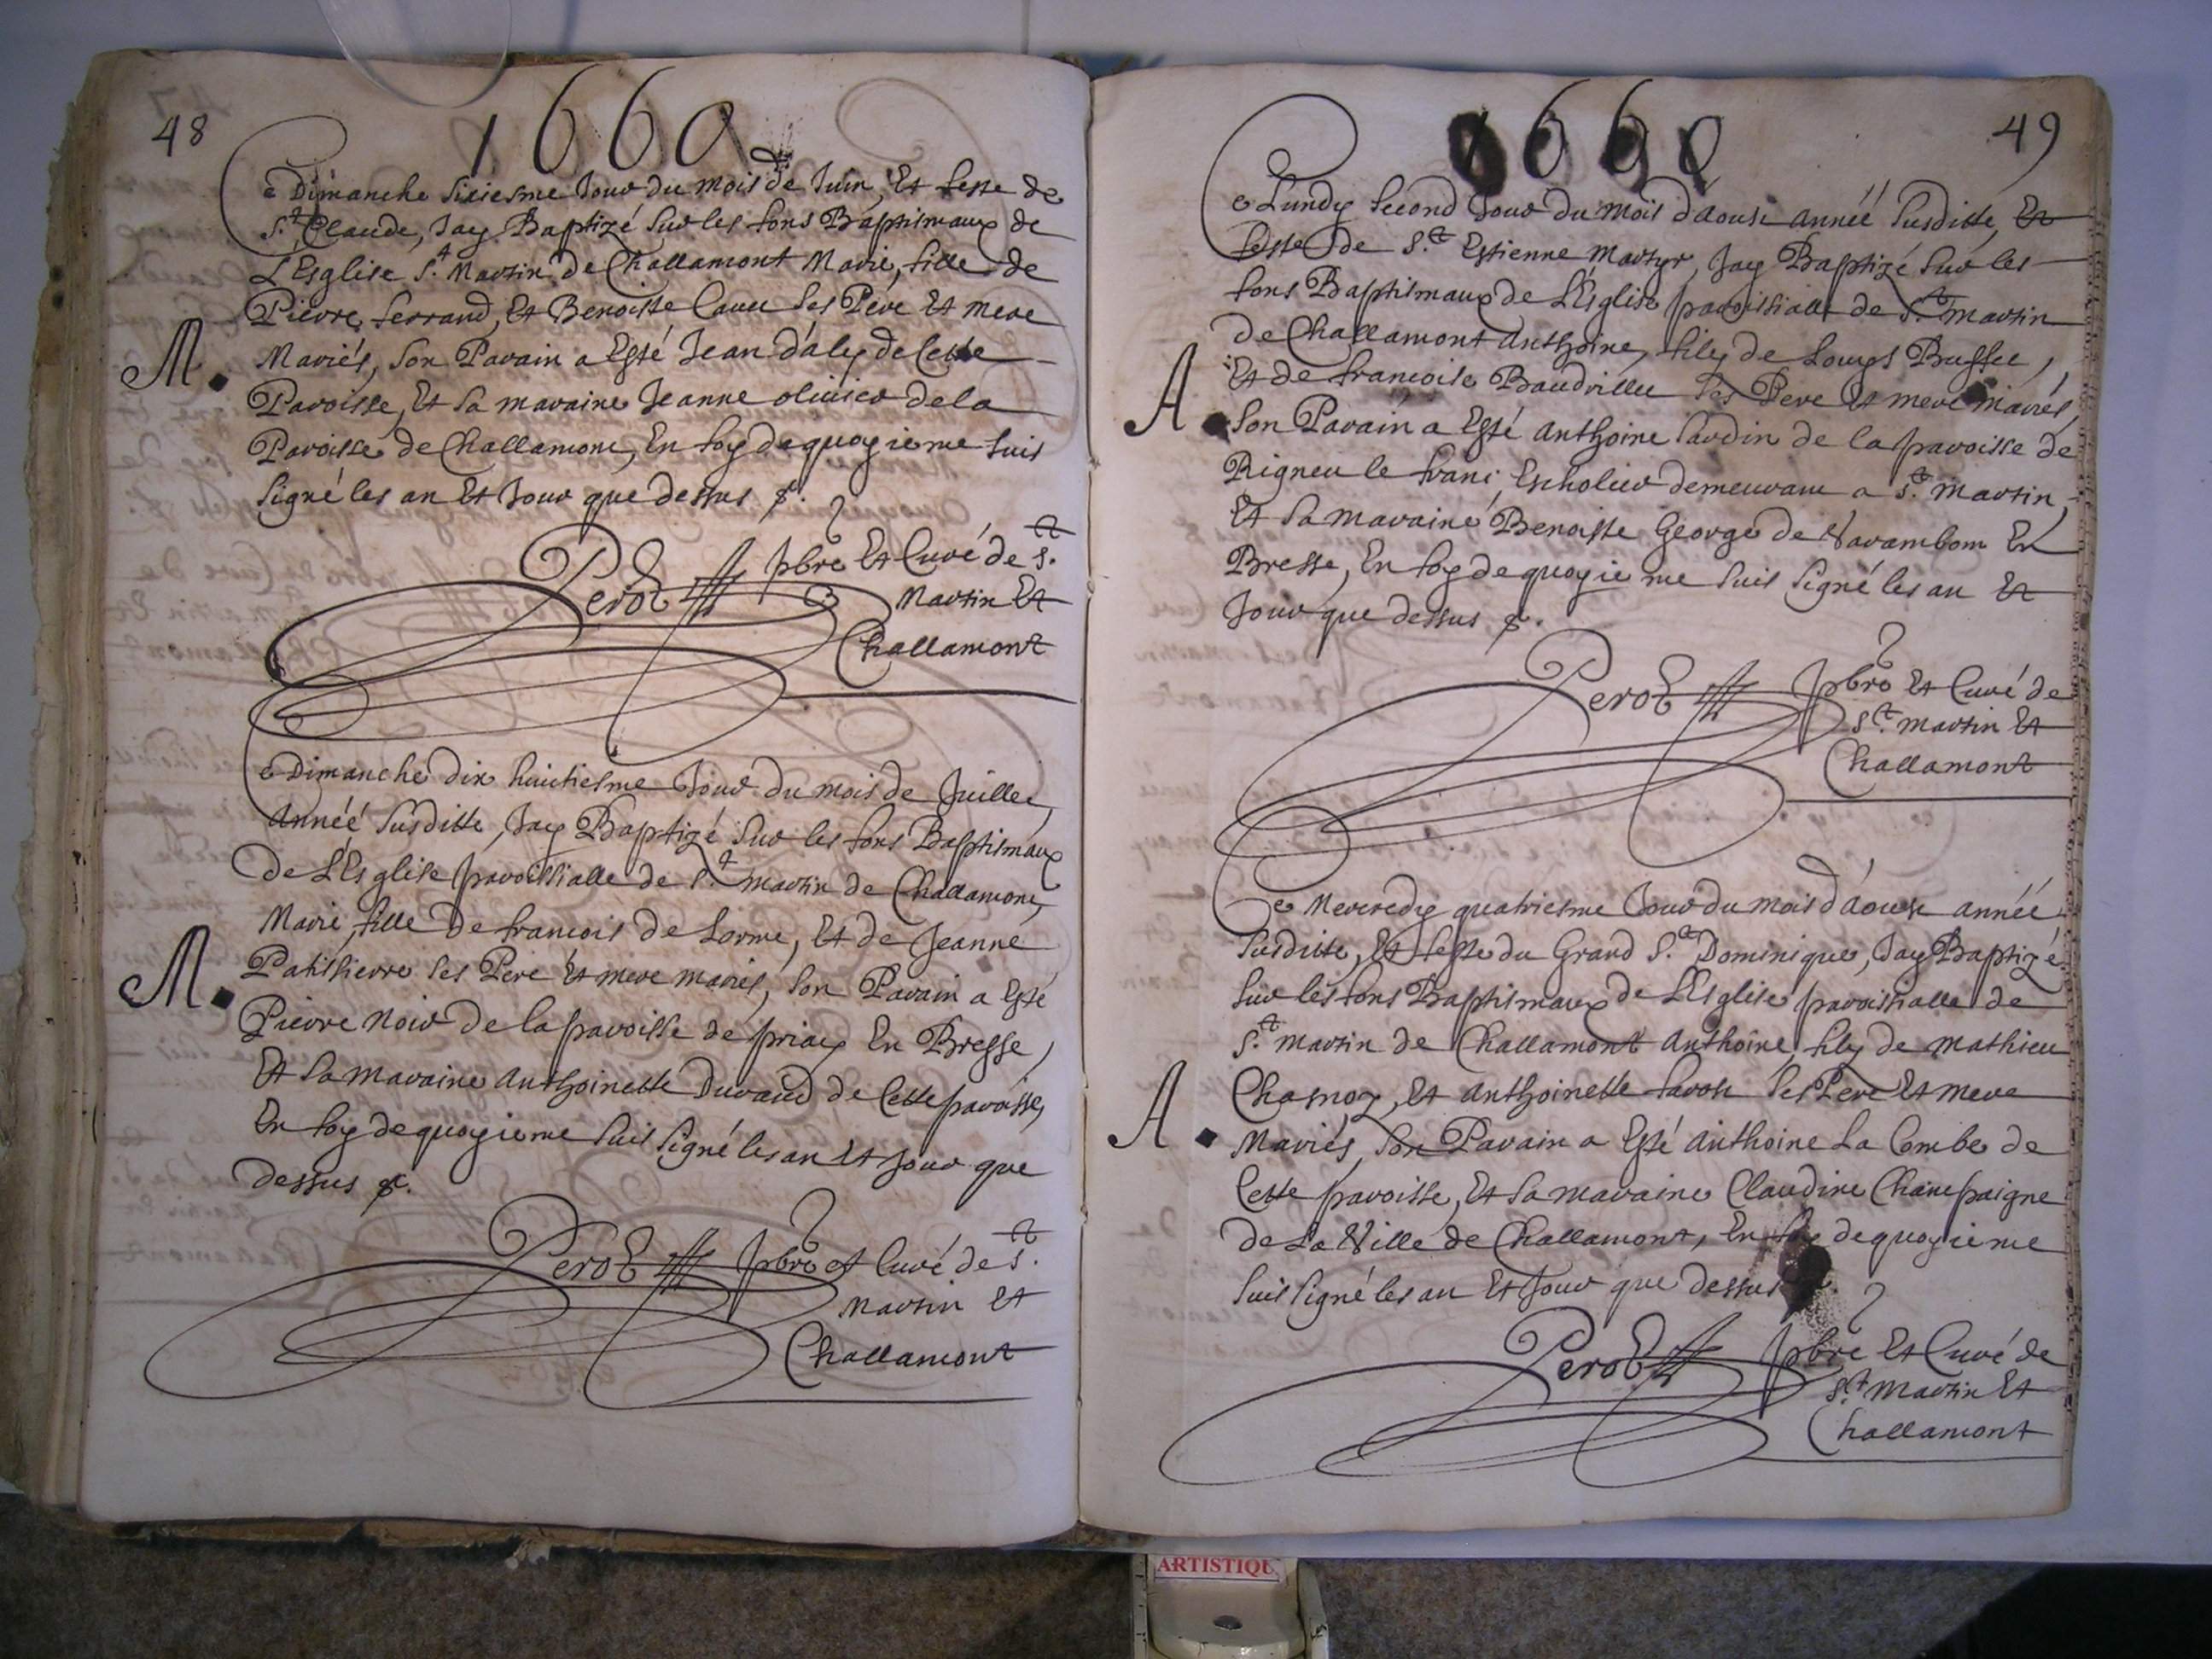 48
1660
Ce Dimanche sixiesme Jour du mois de Juin, Et feste de
S.t Claude, Jay Baptizé sur les fons Baptismaux de
L'Esglise S.t Martin de Challamont Marie, fille de
Pierre ferrand, Et Benoiste Cauet ses Pere Et mere
Mariés, son Parain a Esté Jean d'aly de Cette
M.
Paroisse, Et sa maraine Jeanne oliuier de la
Paroisse de Challamont, En foy de quoy ie me suis
signé les an Et Jour que dessus &.
Perot pbre Et Curé de S.t
Martin Et
Challamont
Ce Dimanche dix huictiesme Jour du mois de Juillet,
Année susditte, Jay Baptizé sur les fons Baptismaux
de L'Esglise paroissialle de S.t martin de Challamont,
Marie, fille de francois de Lorme, Et de Jeanne
M.
Patissierre ses Pere Et mere mariés, son Parain a Esté
Pierre Noir de la paroisse de priay En Bresse,
Et sa maraine Anthoinette Durand de Cette paroisse,
En foy de quoy ie me suis signé les an Et Jour que
dessus &.
Perot pbre et Curé de S.t
Martin Et
Challamont
49
1660
Ce Lundy second Jour du mois d'aoust année susditte, Et
feste de S.t Estienne Martyr, Jay Baptizé sur les
fons Baptismaux de L'Esglise paroissialle de S.t martin
de Challamont Anthoine, fily de Louys Buffet,
Et de francoise Baudvillet ses Pere Et mere mariés
A.
son Parain a Esté Anthoine sardin de la paroisse de
Rigneu le franc, Escholier demeurant a S.t martin,
Et sa maraine Benoiste George de Varambon En
Bresse, En foy de quoy ie me suis signé les an Et
Jour que dessus &.
Perot pbre Et Curé de
S.t martin Et
Challamont
Ce Mercredy quatriesme Jour du mois d'aoust année
susditte, Et feste du Grand S.t Dominique, Jay Baptizé
sur les fons Baptismaux de L'Esglise paroissialle de
S.t martin de Challamont Anthoine, fily de Mathieu
A.
Chasnoz, Et Anthoinette ses Pere Et mere
Mariés, son Parain a Esté Anthoine La Combe de
Cette paroisse, Et sa maraine Claudine Champaigne
de La Ville de Challamont, En foy de quoy ie me
suis signé les an Et Jour que dessus
Perot pbre Et Curé de
S.t Martin Et
Challamont
ARTISTIQU